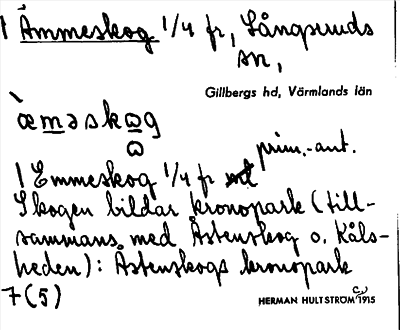 1 Ämmeskog 1/4 fr, Långseruds
sn,
Gillbergs hd, Värmlands län
ὰeməskog
prim.-ant.
1 Emmeskog 1/4 fr
Skogen bildar kronopark (till-
sammans med Åstenskog o. Kåls-
heden): Åstenskogs kronopark
7(5)
HERMAN HULTSTRÖM 1915